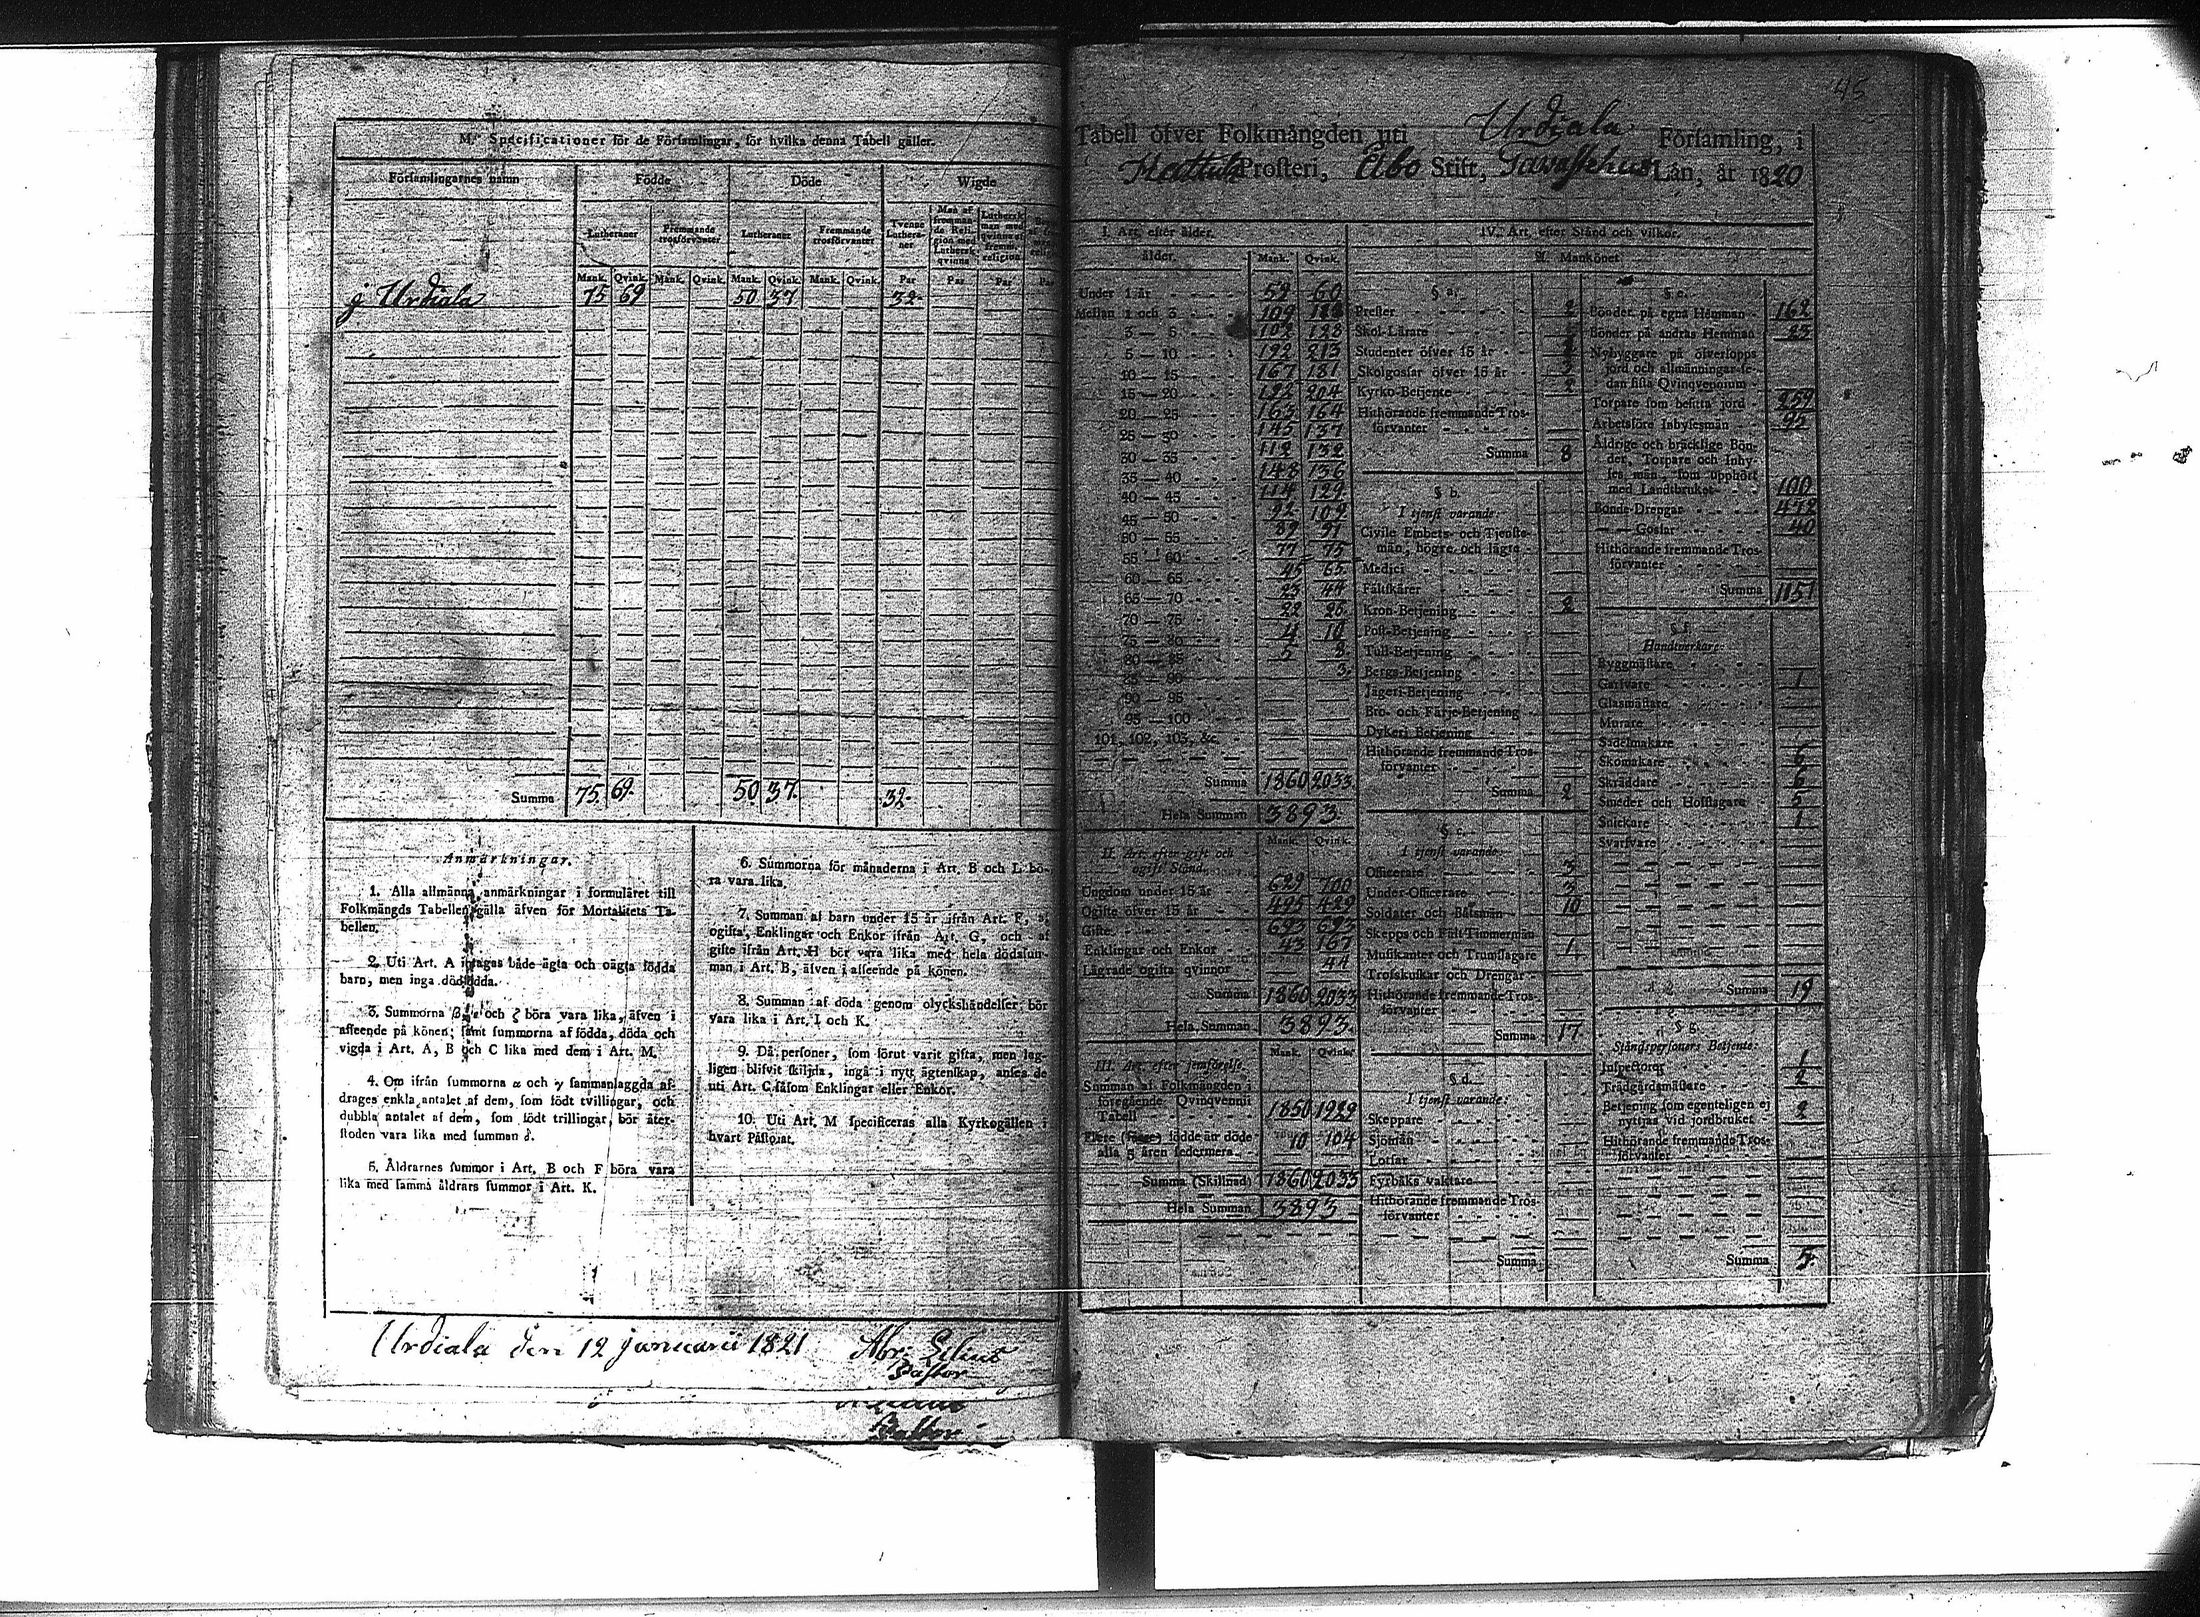 M. Specificationer för de Församlingar, för hvilka denna Tabell gäller.
Församlingarnes namn
Födde
Döde
Wigde
Lutheraner
Fremmande trosförvanter
Lutheraner
Fremmande trosförvanter
Tvenne Lutheraner
Man af fremmande Religion med Luthersk qvinna
Luthersk man med qvinna af fremm. religion
Mank. Qvink. Mank. Qvink. Mank. Qvink. Mank. Qvink. Par Par Par Par
j Urdiala 75 69 50 37 32
Summa 75 69. 50 37. 32
Anmärkningar.
1. Alla allmänna anmärkningar i formuläret till
Folkmängds Tabellen gälla äfven för Mortalitets Ta-
bellen.
2. Uti Art. A intagas både ägta och oägta födda
barn, men inga dödfödda.
3. Summorna β, ε och ζ böra vara lika, äfven i
afseende på könen; samt summorna af födda, döda och
vigda i Art. A, B och C lika med dem i Art. M.
4. Om ifrån summorna α och γ sammanlagda af-
drages enkla antalet af dem, som födt tvillingar, och
dubbla antalet af dem, som födt trillingar, bör åter-
stoden vara lika med summan δ.
5. Åldrarnes summor i Art. B och F böra vara
lika med samma åldrars summor i Art. K.
6. Summorna för månaderna i Art. B och L bö-
ra vara lika.
7. Summan af barn under 15 år ifrån Art. F, af
ogifta, Enklingar och Enkor ifrån Art. G, och af
gifte ifrån Art. H bör vara lika med hela dödssum-
man i Art. B, äfven i afseende på könen.
8. Summan af döda genom olyckshändelser bör
vara lika i Art. I och K.
9. Då personer, som förut varit gifta, men lag-
ligen blifvit skiljda, ingå i nytt ägtenskap, anses de
uti Art. C såsom Enklingar eller Enkor.
10. Uti Art. M specificeras alla Kyrkogällen i
hvart Pastorat.
Urdiala den 12 Januarii 1821 Abr. Lilius
Pastor
Pastor
45
Tabell öfver Folkmängden uti Urdiala Församling, i
Hattula Prosteri, Åbo Stift, Tavastehus Län, år 1820
I. Art. efter ålder.
ålder. Mank. Qvink.
Under 1 år 59 60
Mellan 1 och 3 109
3 — 5 102 123
5 — 10 192 213
10 — 15 167 181
15 — 20 192 204
20 — 25 163 164
25 — 30 145 137
30 — 35 112 132
35 — 40 148 136
40 — 45 114 129
45 — 50 92 109
50 — 55 89 91
55 — 60 77 75
60 — 65 45 65
65 — 70 23 44
70 — 75 22 26
75 — 80 4 10
80 — 85 5 8
85 — 90 3.
90 — 95
95 — 100
101, 102, 103, &c.
Summa 1860 2033
Hela Summan 3893
II. Art. efter gift och ogift Stånd. Mank. Qvink.
Ungdom under 15 år 629 700
Ogifte öfver 15 år 495 429
Gifte 693 693
Enklingar och Enkor 43 167
Lägrade ogifta qvinnor 44
Summa 1860 2033
Hela Summan 3893.
III. Art. efter jemförelse. Mank. Qvink.
Summan af Folkmängden i
föregående Qvinqvennii
Tabell 1850 1929
Flere (Färre) födde än döde
alla 5 åren sedermera 10 104
Summa (Skillnad) 1860 2033
Hela Summan 3893
IV. Art. efter Stånd och vilkor.
A. Mankönet
§ a.
Prester 2
Skol-Lärare
Studenter öfver 15 år
Skolgossar öfver 15 år
Kyrko-Betjente 2
Hithörande fremmande Tros-
förvanter
Summa 8
§ b.
I tjenst varande:
Civile Embets- och Tjenste-
män, högre och lägre
Medici
Fältskärer
Kron-Betjening 2
Post-Betjening
Tull-Betjening
Bergs-Betjening
Jägeri-Betjening
Bro- och Färje-Betjening
Dykeri Betjening
Hithörande fremmande Tros-
förvanter
Summa 2
§ c.
I tjenst varande:
Officerare 3
Under-Officerare 3
Soldater och Båtsmän 10
Skepps och Fält-Timmermän
Musikanter och Trumslagare 1
Trosskuskar och Drengar
Hithörande fremmande Tros-
förvanter
Summa 17
§ d.
I tjenst varande:
Skeppare
Sjömän
Lotsar
Fyrbåks vaktare
Hithörande fremmande Tros-
förvanter
Summa
§ e.
Bönder på egna Hemman 162
Bönder på andras Hemman 23
Nybyggare på öfverlopps
jord och allmänningar se-
dan sista Qvinqvennium
Torpare som besitta jord 259
Arbetsföre Inhysesmän 95
Åldrige och bräcklige Bön-
der, Torpare och Inhy-
ses män, som upphört
med Landtbruket 100
Bonde-Drengar 472
— — Gossar 40
Hithörande fremmande Tros-
förvanter
Summa 1151
§ f.
Handtverkare:
Byggmästare
Garfvare 1
Glasmästare
Murare
Sadelmakare
Skomakare 6
Skräddare 6
Smeder och Hofslagare 5
Snickare 1
Svarfvare
Summa 19
§ g.
Ståndspersoners Betjente:
Inspectorer 1
Trädgårdsmästare 2
Betjening som egenteligen ej
nyttjas vid jordbruket 2
Hithörande fremmande Tros-
förvanter
Summa 5